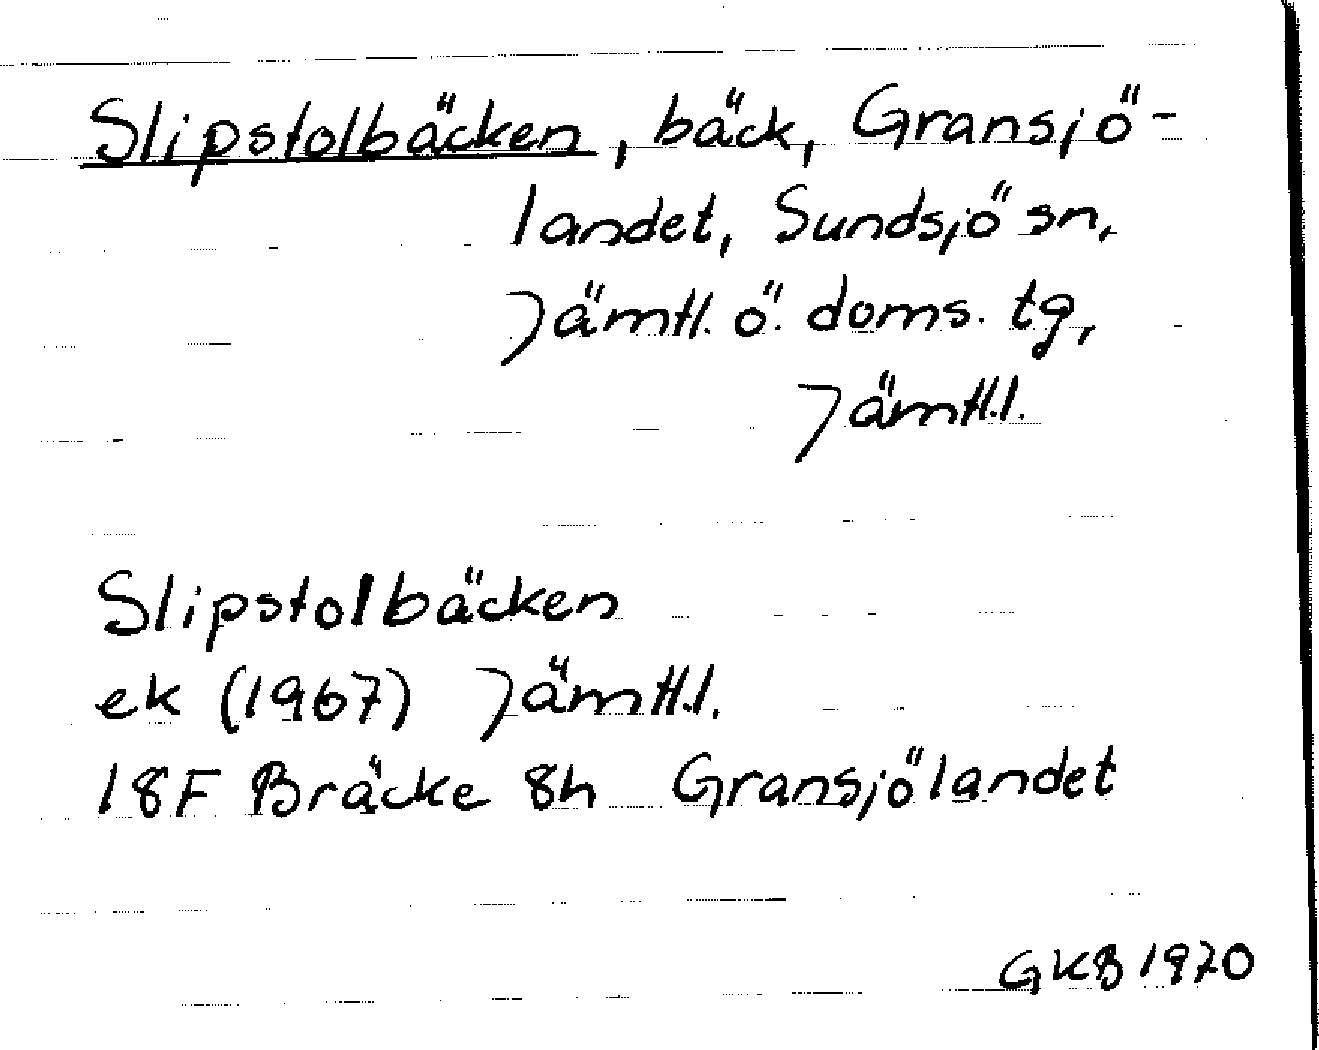 Slipstolbäcken, bäck, Gransjö-
landet, Sundsjö sn,
Jämtl. ö. doms. tg,
Jämtl.l.
Slipstolbäcken
ek (1967) Jämtl.l.
18F Bräcke 8h Gransjölandet
GKB 1970